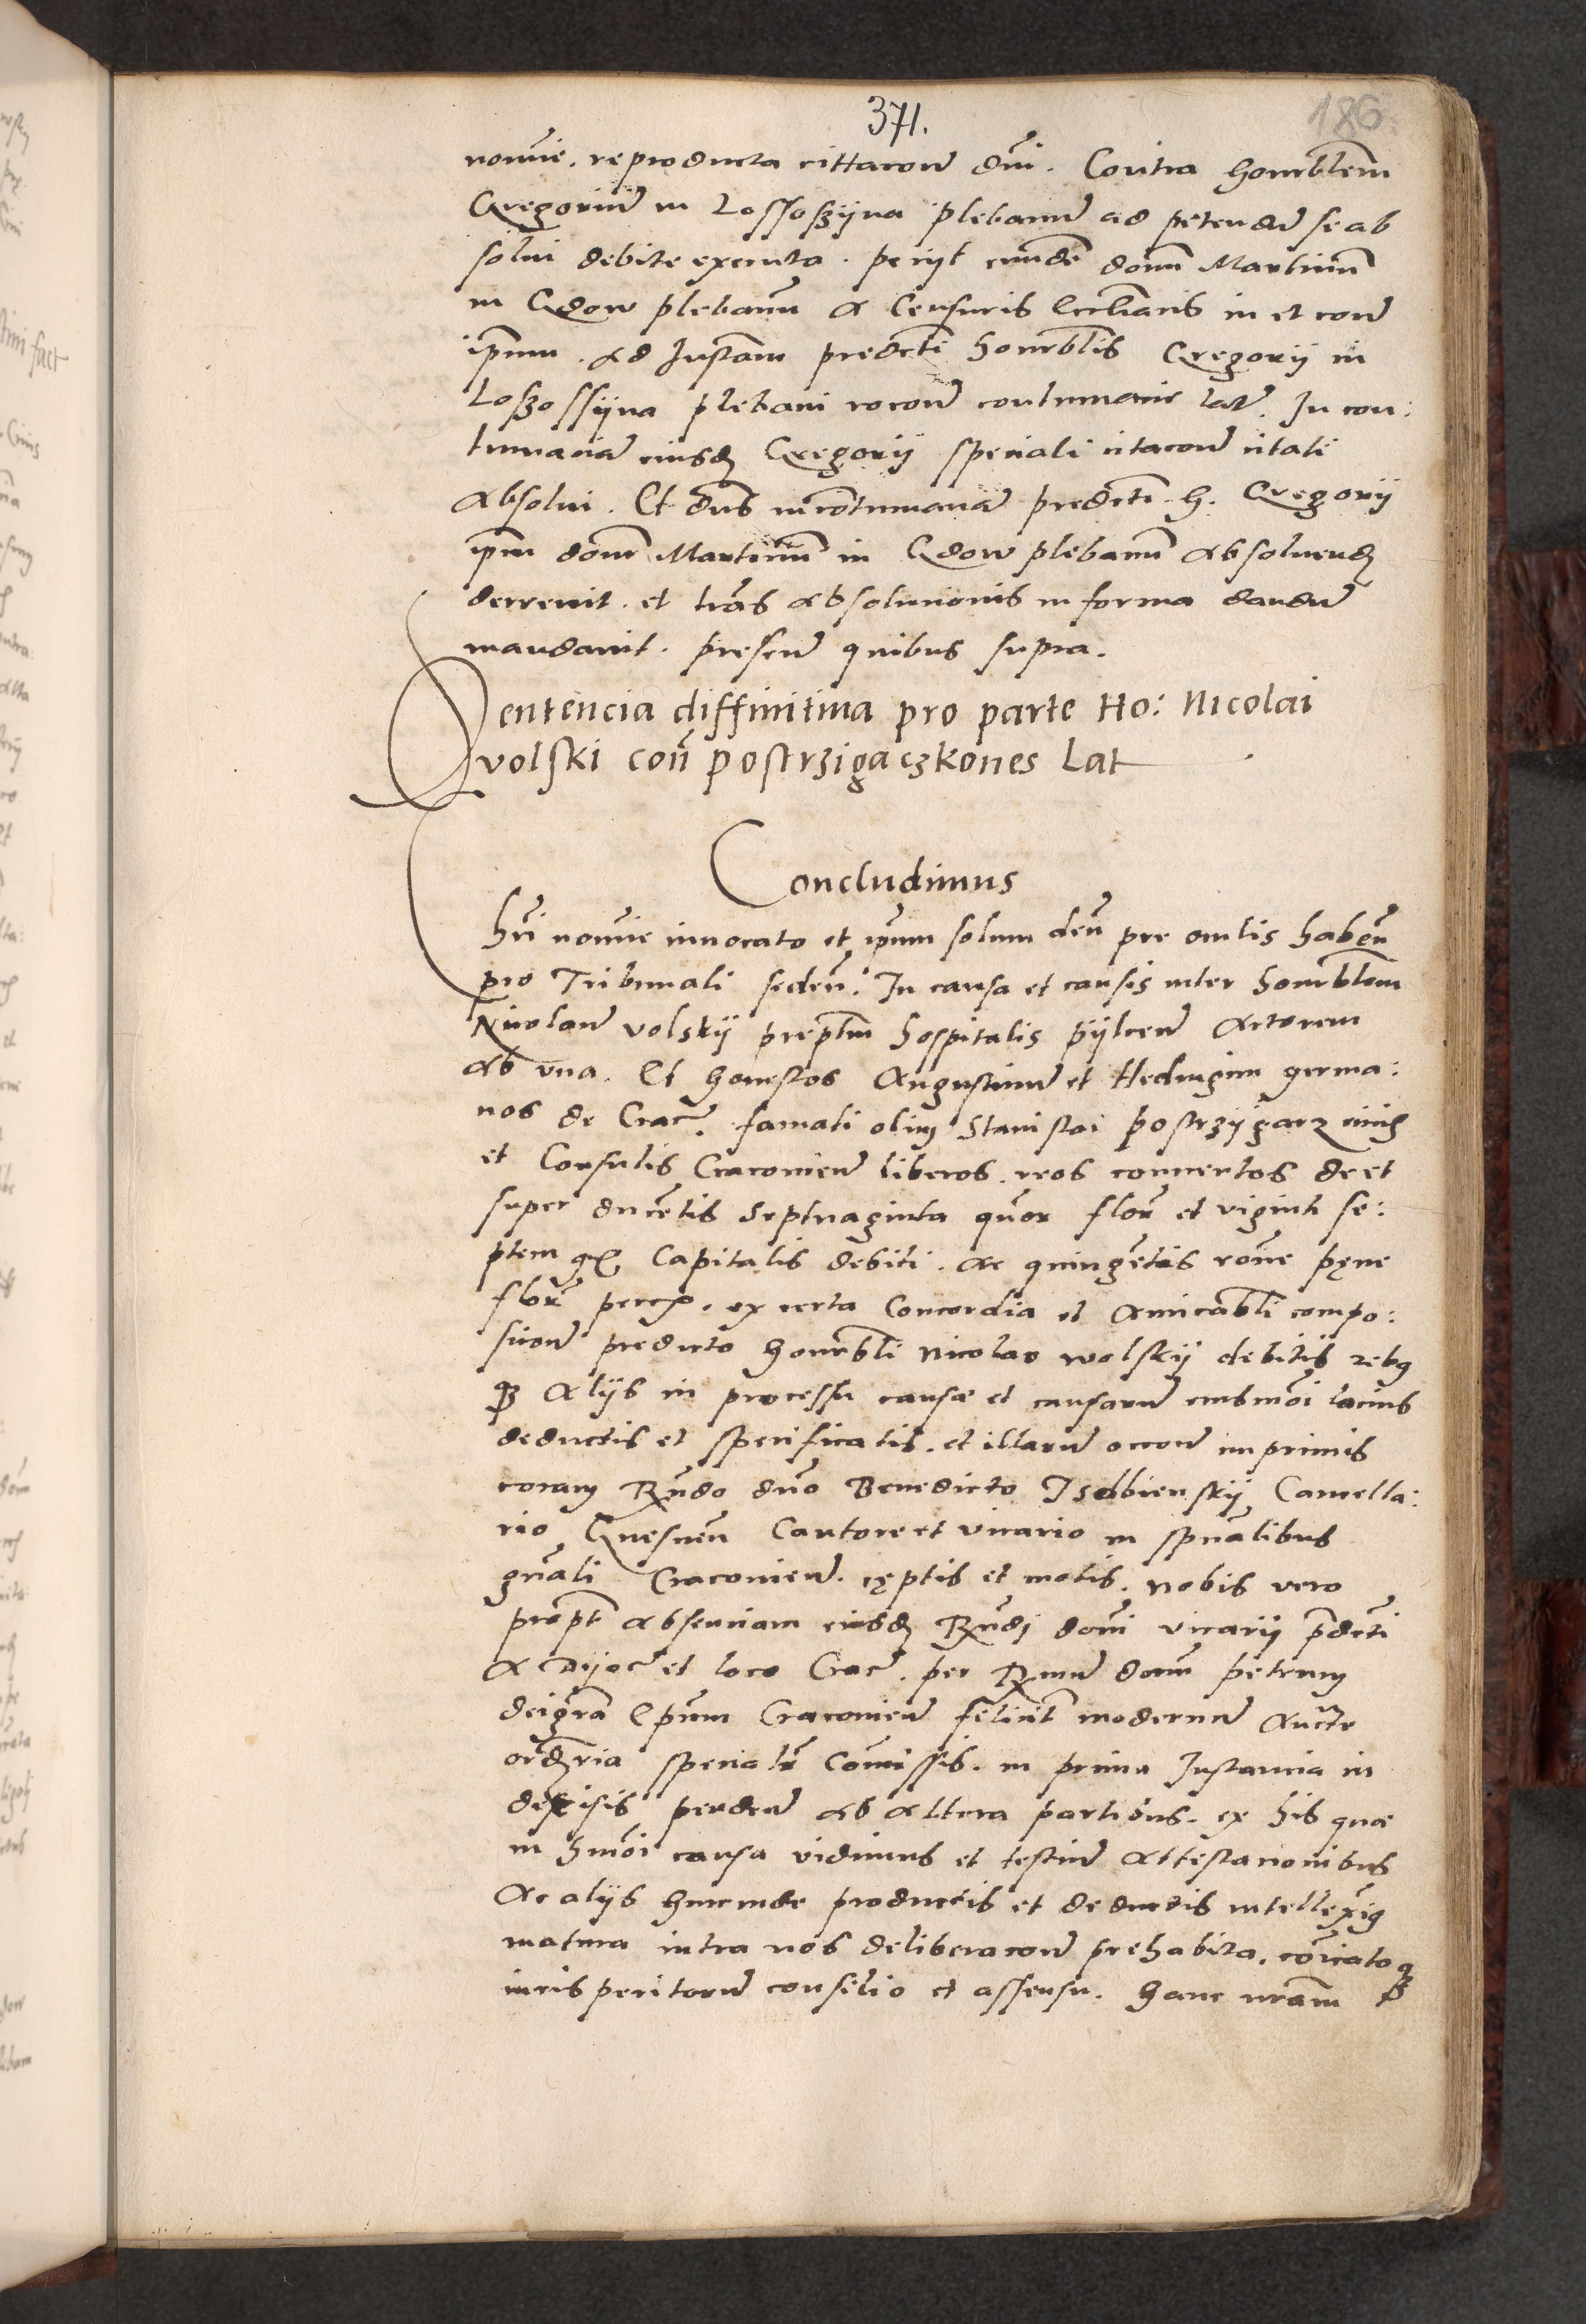 371.
186
nomine. reproducta cittacone dni. Contra honorablem
Gregorium in Lossoszyna plebanum ad petendum se ab
solui debite executa. petijt eundem donum Martinum
in Gdow plebanum a Censuris Ecclianis in et contra
ipsum. ad Instam predicti honorablis Gregorij in
Loszossijna plebani rocone contumacie lat. In con:
tumaciam eiusdem Gregorij speciali citacone citati
absolui. Et dns in contumaciam predicti h. Gregorij
ipm donum Martinum in Gdow plebanum absoluendum
decreuit. et lras absolucionis in forma dandum
mandauit. presen quibus supra.
Sentencia diffinitiua pro parte Ho: Nicolai
volski con postrzigaczkones Lat
Concludimus
Chri nomine inuocato et ipsum solum deum pre oculis haben
pro Tribunali seden. In causa et causis inter honorablem
Nicolaum volskij preptum hospitalis pijlcen actorem
ab vna. Et honestos Augustinum et Hedwigim germa:
nos de Crac. famati olim Stanislai postrzijgacz ciuis
et Consulis Cracouien liberos. reos conuentos de et
super ducentis septuaginta quatuor flor et viginti se:
ptem gr. Capitalis debiti. ac quingetis rone pene
flor percep. ex certa Concordia et amicabli compo:
sicone predicto honorabli Nicolao wolskij debitis rebus
q3 alijs in processu causae et causarum eiusmoi lacius
deductis et specificatis. et illarum occone imprimis
coram Rndo dno Benedicto Isdbienskij Cancella:
rio Gnesnen Cantore et vicario in spualibus
gnali Cracouien. ceptis et motis. nobis vero
propt absenciam eiusdem Rndi doni vicarij predicti
a Dijoc et loco Crac. per Rmum donum petrum
dei gra Epum Cracouien felicit modernum aucte
ordria specialr Commissis. in prima Instancia in
decisis penden ab altera partibus. ex his quae
in hmoi causa vidimus et testium attestacionibus
ac alijs hincinde productis et deductis intelleximus
matura intra nos deliberacone prehabita. coicato q3
iuris peritorum consilio et assensu. hanc nram